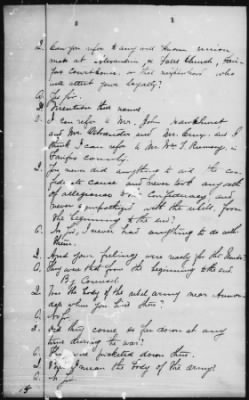 2
Q. Can you refer to any well known union
men at Alexandria, or Falls Church, Fair-
fax Courthouse, or that neighborhood who
will attest your loyalty?
A. Yes sir.
Q. Mention their names.
A. I can refer to Mr. John Hawxhurst
and Mr. Alexander and Mr. Cruz. and I
think I can refer to Mr. Wm. T. Rumsey in
Fairfax county.
Q. You never did anything to aid the con-
federate cause and never took any oath
of allegiance to the Confederacy and
never sympathized with the rebels, from
the beginning to the end?
A. No sir, I never had anything to do with
them.
Q. And your feelings were really for the Union?
A. They were that from the beginning to the end.
By Counsel
Q. Was the body of the rebel army near Annan-
dale when you lived there?
A. No sir.
Q. Did they come so far down at any
time during the war?
A. They were picketed down there.
Q. I mean the body of the army?
A. No sir.